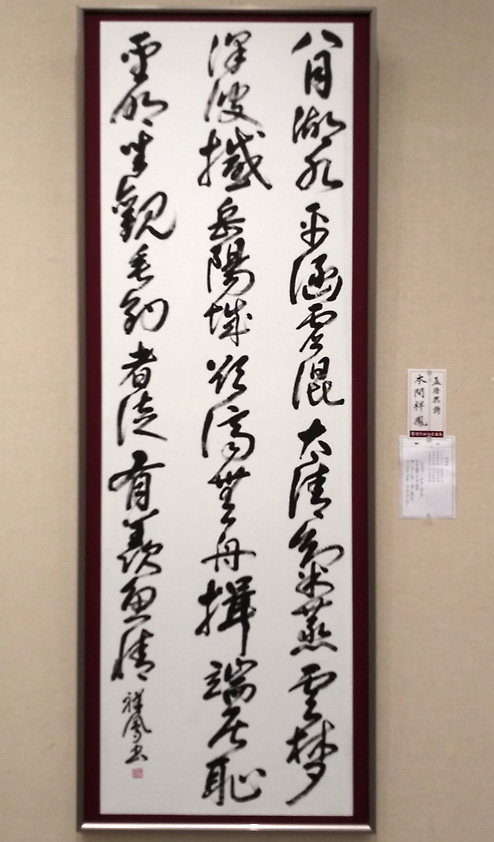 八月湖水平涵虚混太清氣蒸雲梦
澤波撼岳陽城欲濟無舟楫端居恥
聖明坐觀垂釣者徒有羨魚情 祥鳳書
孟浩然詩
本間祥鳳